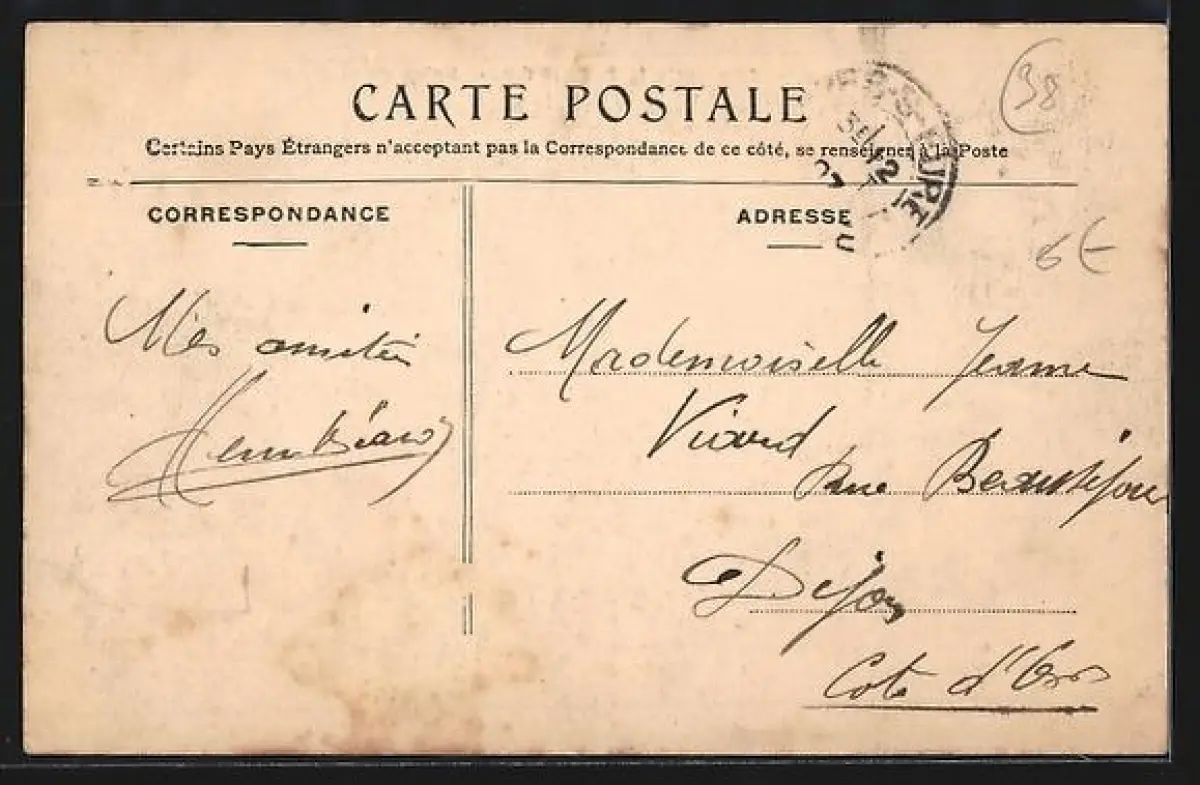 CARTE POSTALE
Certains Pays Étrangers n'acceptant pas la Correspondance de ce côté, se renseigner à la Poste
CORRESPONDANCE
ADRESSE
38
6€
Mes amitiés
Mademoiselle Jeanne
Viard
Rue
Dijon
Cote d'Or